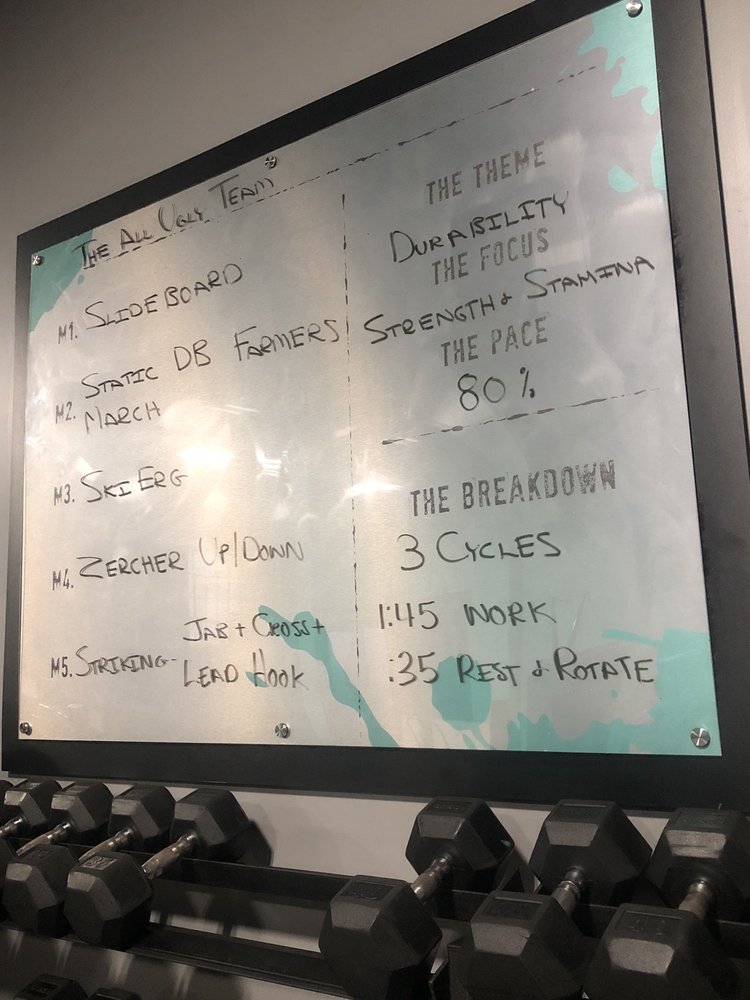 THE ALL UGLY TEAM
M1. SLIDEBOARD
M2. STATIC DB FARMERS
MARCH
M3. SKI ERG
M4. ZERCHER UP/DOWN
M5. STRIKING- JAB + CROSS +
LEAD HOOK
THE THEME
DURABILITY
THE FOCUS
STRENGTH & STAMINA
THE PACE
80%
THE BREAKDOWN
3 CYCLES
1:45 WORK
:35 REST & ROTATE